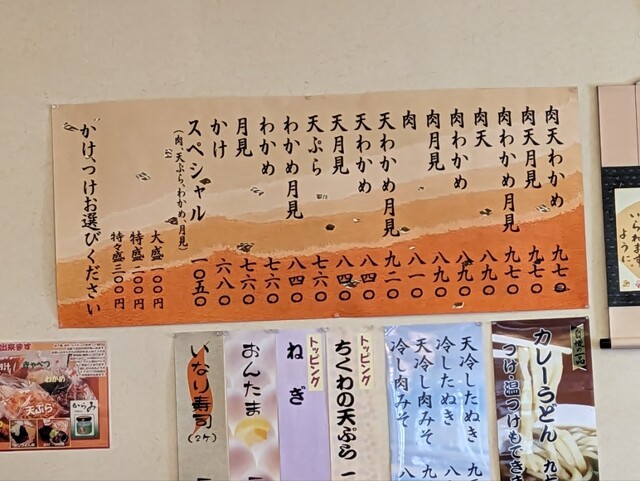 肉天わかめ 九七〇
肉天月見 九七〇
肉わかめ月見 九七〇
肉天 八九〇
肉わかめ 八九〇
肉月見 八一〇
肉
天わかめ月見 九二〇
天わかめ 八四〇
天月見 八四〇
天ぷら 七六〇
わかめ月見 八四〇
わかめ 七六〇
月見 七六〇
かけ 六八〇
スペシャル 一〇五〇
(肉、天ぷら、わかめ、月見)
大盛一〇〇円
特盛二〇〇円
特々盛三〇〇円
かけ、つけお選びください
られます
ように
カレーうどん 九七
つけ・温つけもできま
冷したぬき 九
天冷したぬき 八
天冷し肉みそ 九
冷し肉みそ 八
トッピング
ちくわの天ぷら 一
トッピング
ねぎ
おんたま
いなり寿司
(2ケ)
出来ます
キャベツ
わかめ
天ぷら